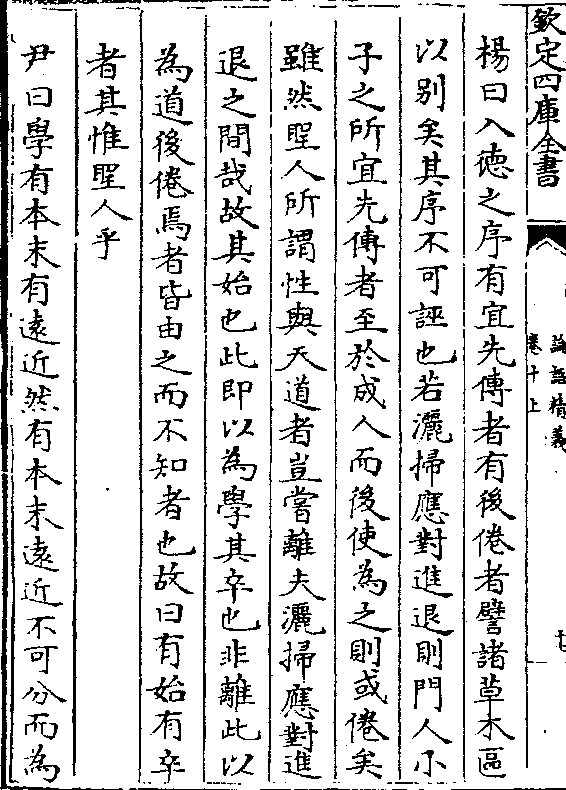 欽定四庫全書
論語精義
卷十上
楊曰入徳之序有宜先傳者有後倦者譬諸草木區
以别矣其序不可誣也若灑掃應對進退則門人小
子之所宜先傳者至於成人而後使為之則或倦矣
雖然聖人所謂性與天道者豈當離夫灑掃應對進
退之間哉故其始也此即以為學其卒也非離此以
為道後倦焉者皆由之而不知者也故曰有始有卒
者其惟聖人乎
尹曰學有本末有遠近然有本末遠近不可分而為